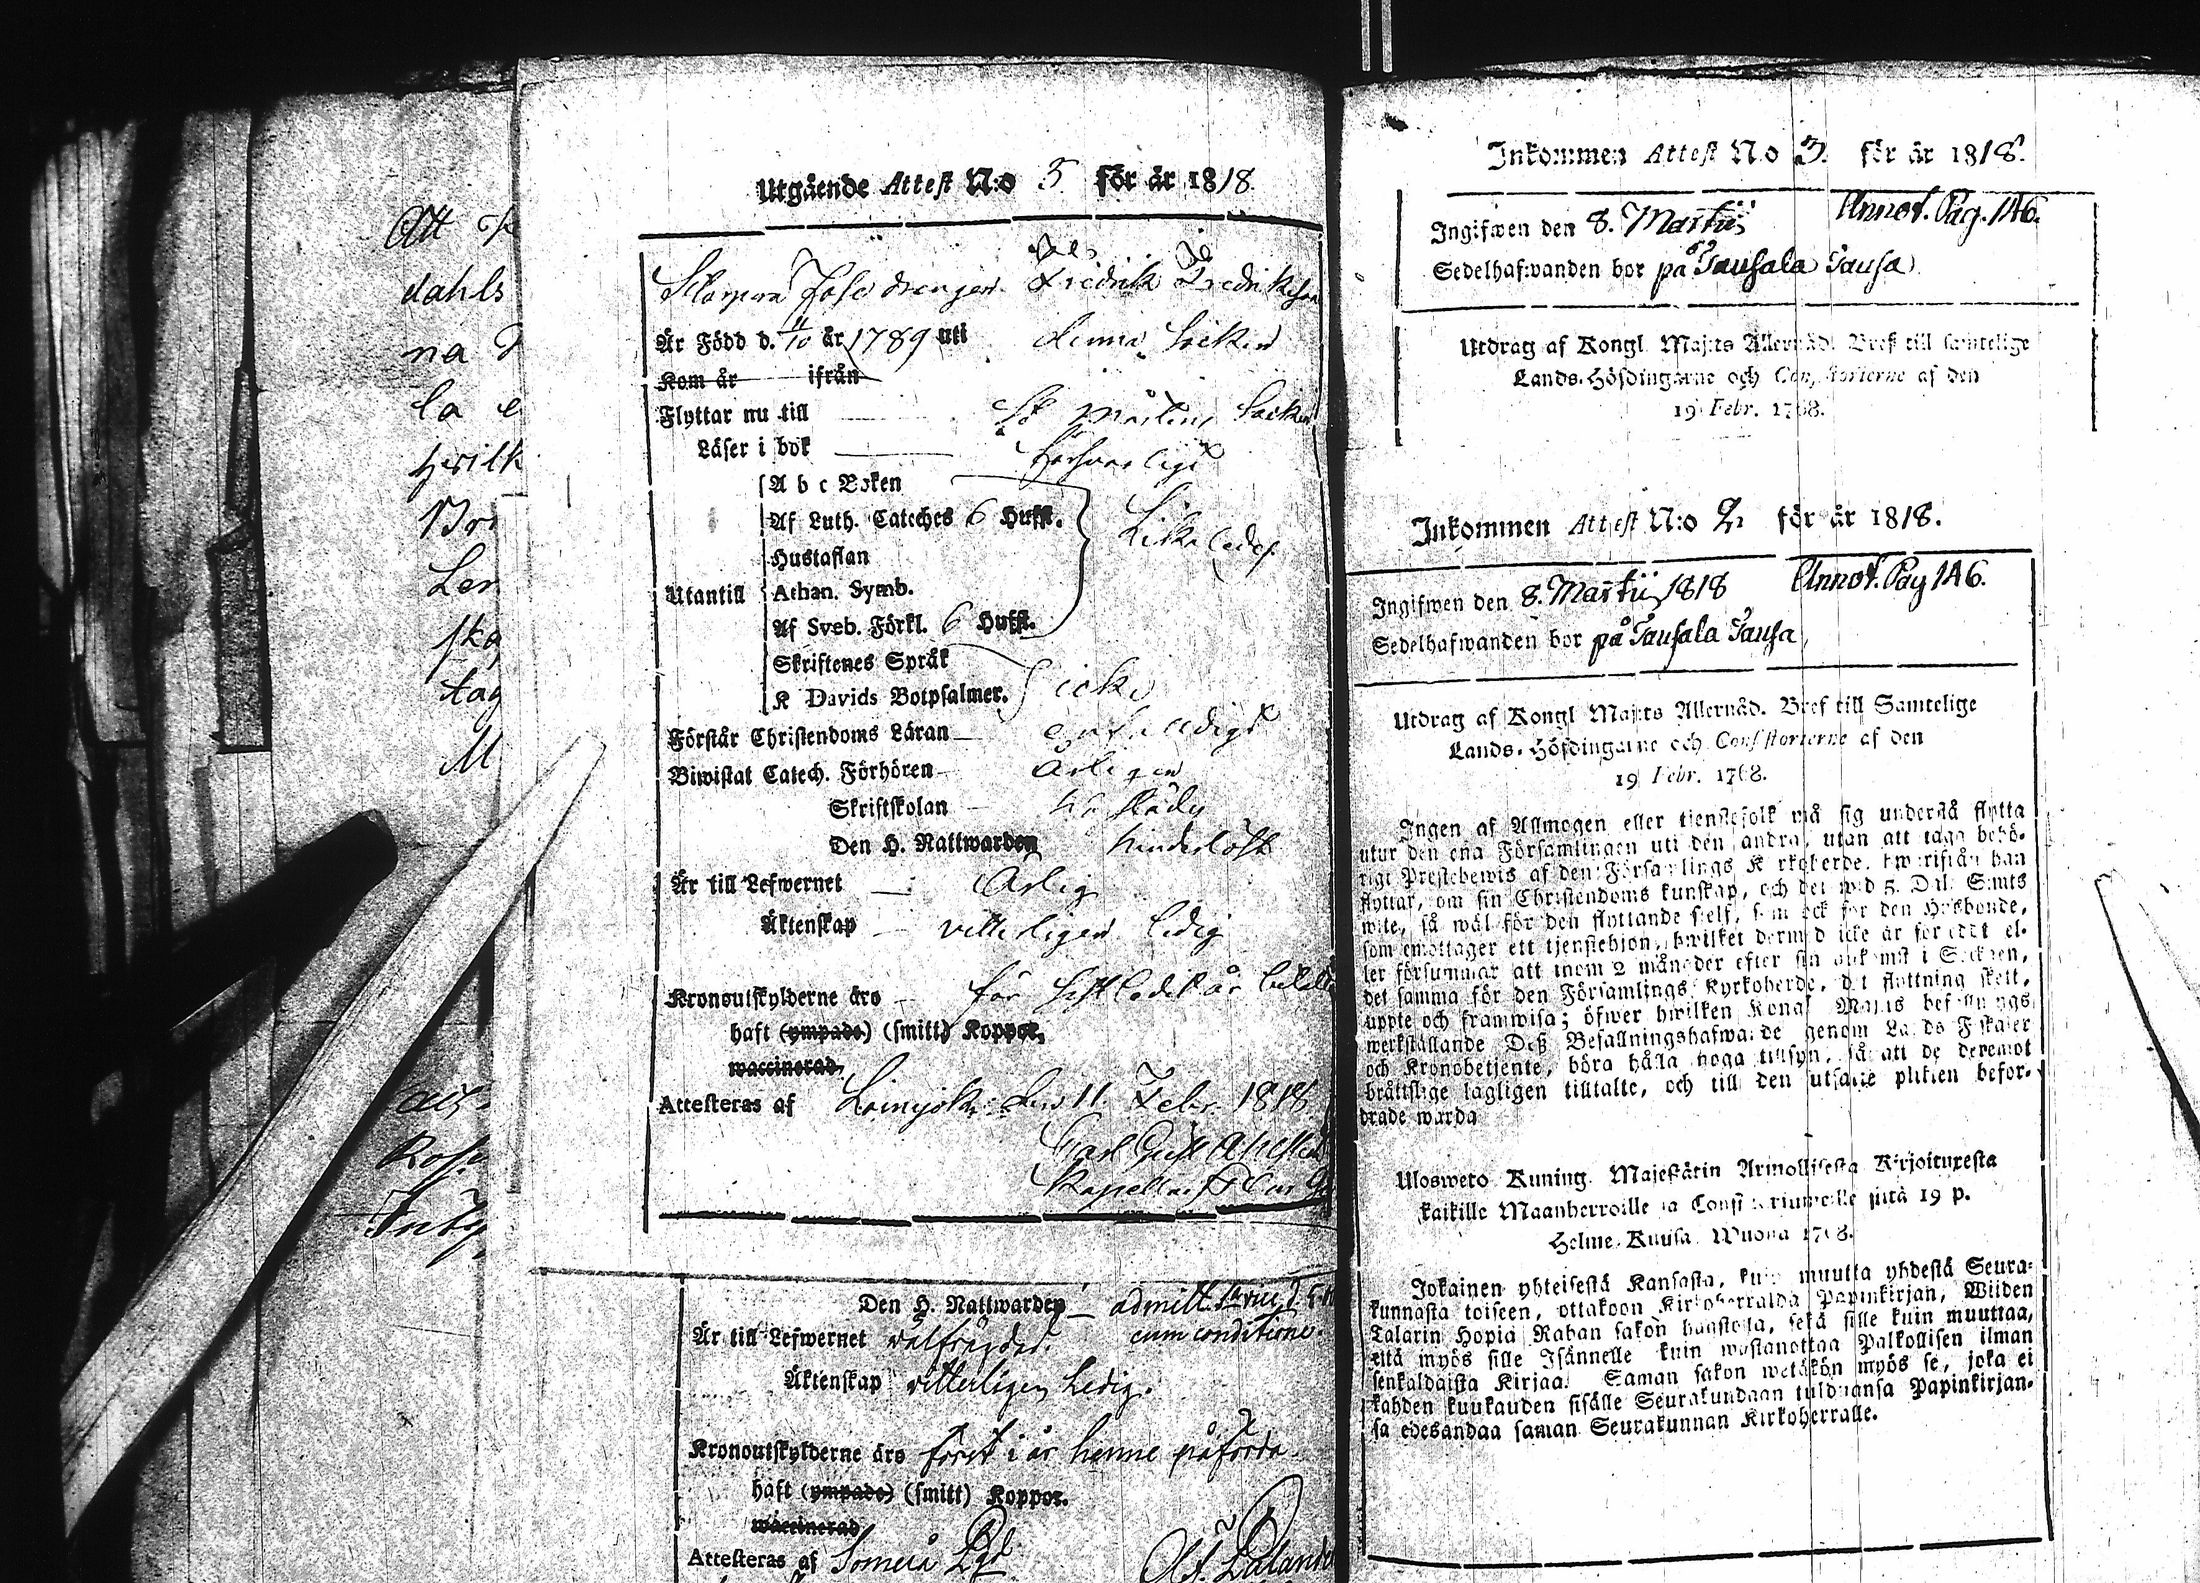 Att
dahls
na
la e
hvilk
Lem
tag
M
Utgående Attest N:o 5 för år 1818.
drängen Fredrik Fredriksson
Är Född d. 11/10 år 1789 uti Lemo Socken
Kom år ifrån
Flyttar nu till St Mårtens Socken
Läser i bok försvarligt
A b c Boken
Af Luth. Cateches 6 Hufst.
Hustaflan
Utantill Athan. Symb.
Af Sveb. Förkl. 6 Hufst.
Likaledes
Skriftenes Språk
K Davids Botpsalmer. icke
Förstår Christendoms Läran enfaldigt
Biwistat Catech. Förhören Årligen
Skriftskolan
Den H. Nattwarden hinderlöst
Är till Lefwernet Ärlig
Äktenskap vitterligen ledig
Kronoutskylderne äro för sistledet år
haft (ympade) (smitt) Koppor.
waccinerad
Attesteras af Loimjoki den 11. Febr. 1818
Carl Gust
Kapellan
Den H. Nattwarden admitt.
Är till Lefwernet välfrägdad. cum conditione.
Äktenskap vitterligen Ledig.
Kronoutskylderne äro först i år henne påförda.
haft (ympade) (smitt) Koppor.
waccinerad
Attesteras af Somero
Inkommen Attest N:o 3. för år 1818.
Ingifwen den 8. Martii Annot. Pag. 146.
Sedelhafwanden bor på Tausala Tausa
Utdrag af Kongl. Maj:ts Allernåd. Bref till samtelige
Lands-Höfdingarne och Consistorierne af den
19 Febr. 1768.
Inkommen Attest N:o 2. för år 1818.
Ingifwen den 8. Martii 1818 Annot. Pag 146.
Sedelhafwanden bor på Tausala Tausa
Utdrag af Kongl Maj:ts Allernåd. Bref till Samtelige
Lands-Höfdingarne och Consistorierne af den
19 Febr. 1768.
Ingen af Allmogen eller tienstefolk må sig understå flytta
utur den ena Församlingen uti den andra, utan att taga behö-
rigt Prestebewis af den Församlings Kyrkoherde, hwarifrån han
flyttar, om sin Christendoms kunskap, och det wid 5. Dal: S:mts
wite, så wäl för den flyttande sjelf, som ock för den Husbonde,
som emottager ett tjenstehjon, hwilket dermed icke är försedt el-
ler försummar att inom 2 månader efter sin ankomst i Socknen,
det samma för den Församlings Kyrkoherde, dit flyttning skett,
uppte och framwisa; öfwer hwilken Kongl Maj:ts befallnings
werkställande Deß Befallningshafwande genom Lands Fiskaler
och Kronobetjente, böra hålla noga tillsyn, så att de deremot
bråttslige lagligen tilltalte, och till den utsatte plikten befor-
drade warda
Ulosweto Kuning. Majestätin Armollisesta Kirjoituxesta
kaikille Maanherroille ja Consistoriumeille siitä 19 p.
Helme Kuusa Wuona 1768.
Jokainen yhteisestä Kansasta, kuin muutta yhdestä Seura-
kunnasta toiseen, ottakoon Kirkoherralda Papinkirjan, Wiiden
Talarin Hopia Rahan sakon haastolla, sekä sille kuin muuttaa,
että myös sille Isännelle kuin wastanottaa Palkollisen ilman
senkaldaista Kirjaa. Saman sakon wetäkön myös se, joka ei
kahden kuukauden sisälle Seurakundaan tulduansa Papinkirjan-
sa edesandaa saman Seurakunnan Kirkoherralle.